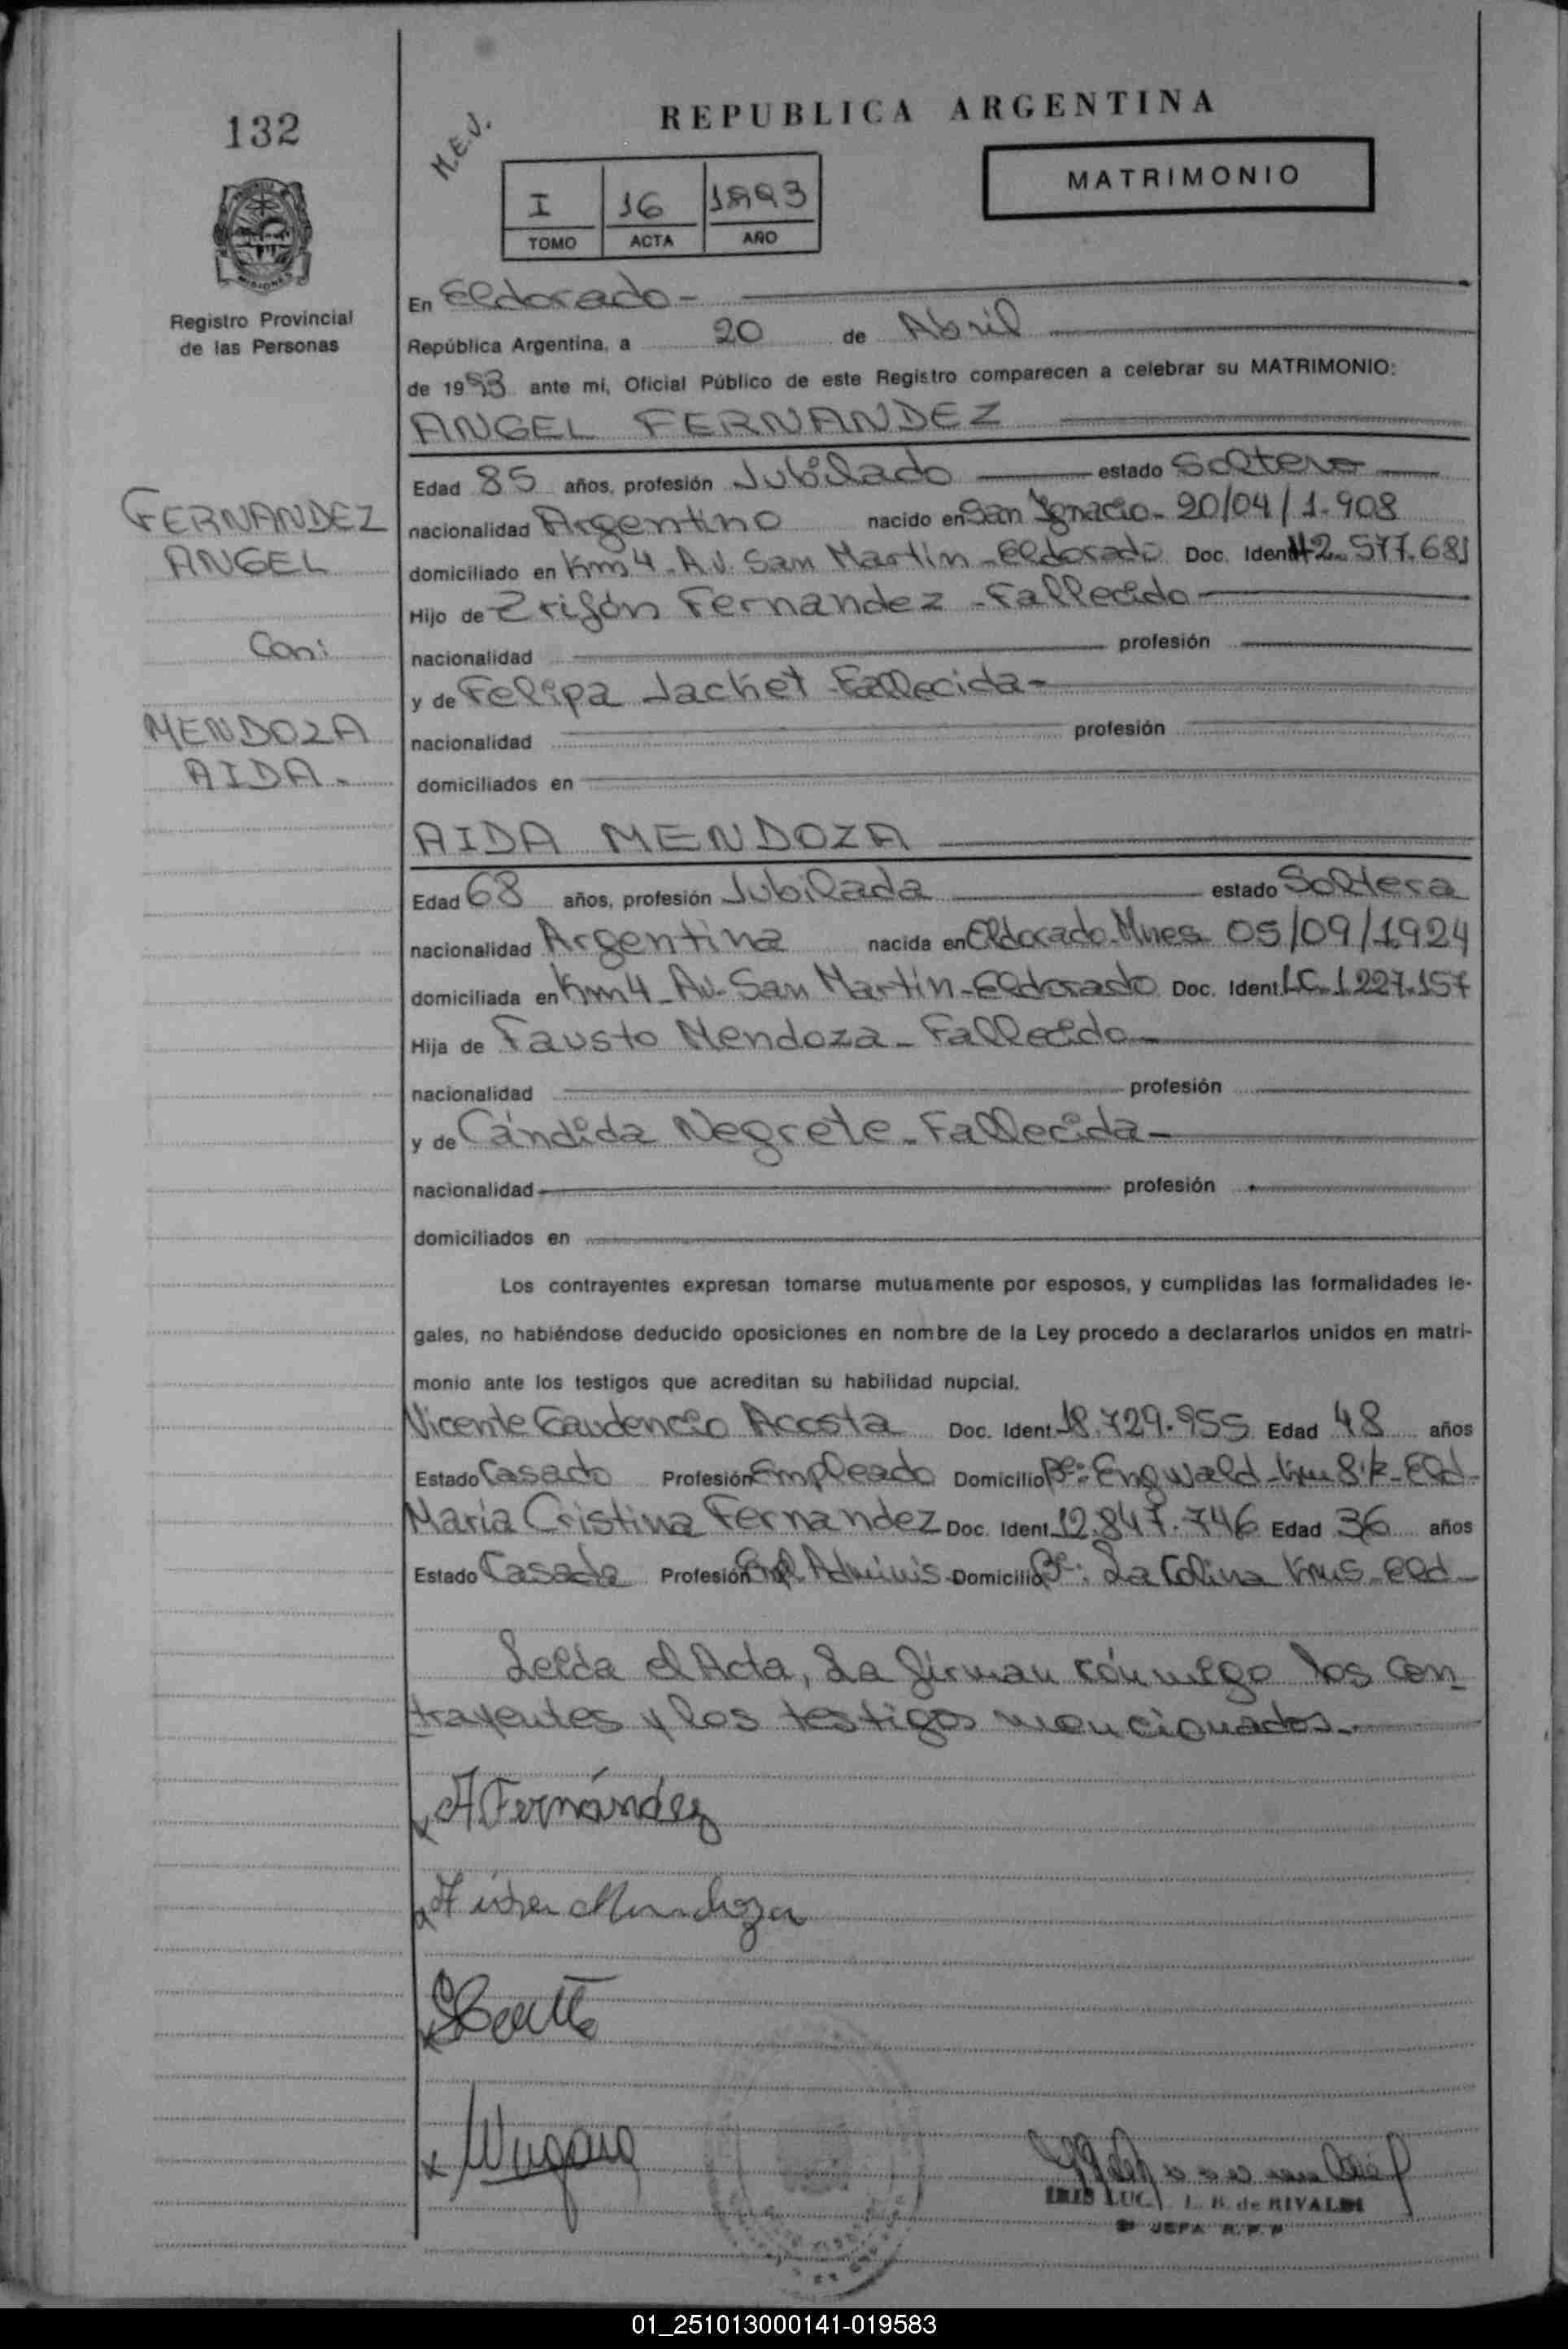 132
REPUBLICA ARGENTINA
M.E.J.
MATRIMONIO
I 16 1993
TOMO ACTA AÑO
MISIONES
Registro Provincial
de las Personas
En Eldorado-
República Argentina, a 20 de Abril
de 1993 ante mi, Oficial Público de este Registro comparecen a celebrar su MATRIMONIO:
ANGEL FERNANDEZ
Edad 85 años, profesión Jubilado estado Soltero
FERNANDEZ
ANGEL
Con:
MENDOZA
AIDA.-
nacionalidad Argentino nacido en San Ignacio- 20/04/1.908
domiciliado en Km 4-Av. San Martín-Eldorado Doc. Ident. 2.577.681
Hijo de Zrifón Fernandez -Fallecido
nacionalidad profesión
y de Felipa Jachet -Fallecida-
nacionalidad profesión
domiciliados en
AIDA MENDOZA
Edad 68 años, profesión Jubilada estado Soltera
nacionalidad Argentina nacida en Eldorado-Mnes 05/09/1924
domiciliada en Km4-Av-San Martín-Eldorado Doc. Ident. LC.1.227.157
Hija de Fausto Mendoza-Fallecido-
nacionalidad profesión
y de Cándida Negrete-Fallecida-
nacionalidad profesión
domiciliados en
Los contrayentes expresan tomarse mutuamente por esposos, y cumplidas las formalidades le-
gales, no habiéndose deducido oposiciones en nombre de la Ley procedo a declararlos unidos en matri-
monio ante los testigos que acreditan su habilidad nupcial.
Vicente Gaudencio Acosta Doc. Ident. 18.729.955 Edad 48 años
Estado Casado Profesión Empleado Domicilio Bº: Engwald-Km 8½-Eld-
Maria Cristina Fernandez Doc. Ident. 12.847.746 Edad 36 años
Estado Casada Profesión Adminis- Domicilio Bº: La Colina Eld-
Leída el Acta, La firman conmigo los con-
trayentes y los testigos mencionados.-
A Fernández
Aida Mendoza
L. B. de RIVALDI
JEFA R.P.P
01_251013000141-019583